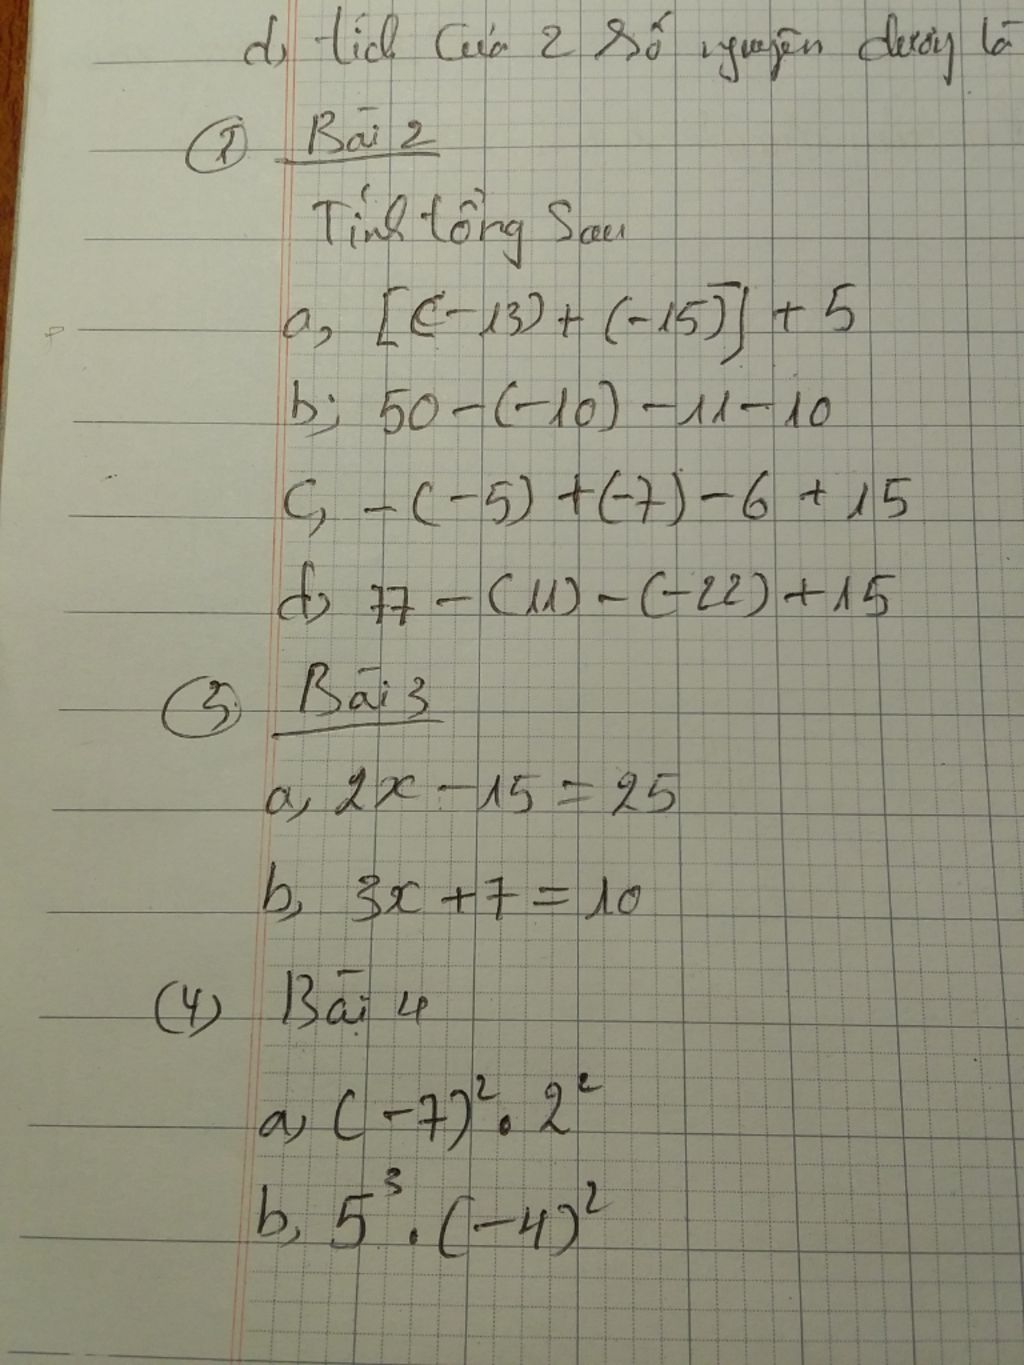 d, tích của 2 số nguyên dương là
② Bài 2
Tính tổng sau
a, [(-13) + (-15)] + 5
b; 50 - (-10) - 11 - 10
c, - (-5) + (-7) - 6 + 15
d, 77 - (11) - (-22) + 15
③ Bài 3
a, 2x - 15 = 25
b, 3x + 7 = 10
(4) Bài 4
a, (-7)² . 2²
b, 5³ . (-4)²